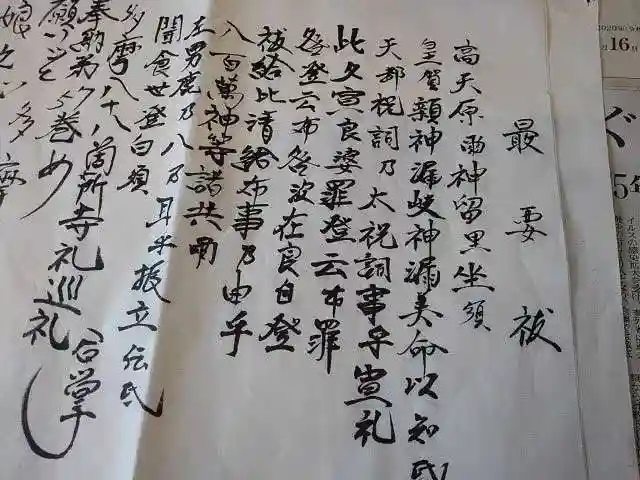 最要祓
高天原爾神留里坐須
皇賀親神漏岐神漏美命以知氐
天都祝詞乃太祝詞事乎宣礼
此久宣良婆罪登云布罪
咎登云布咎波在良自登
祓給比清給布事乃由乎
八百萬神等諸共爾
左男鹿乃八乃耳乎振立氐
聞食世登白須
多摩八十八箇所寺礼巡礼 合掌
奉納第75巻め
願い
娘 多摩
2020年
16
ぐ
5年